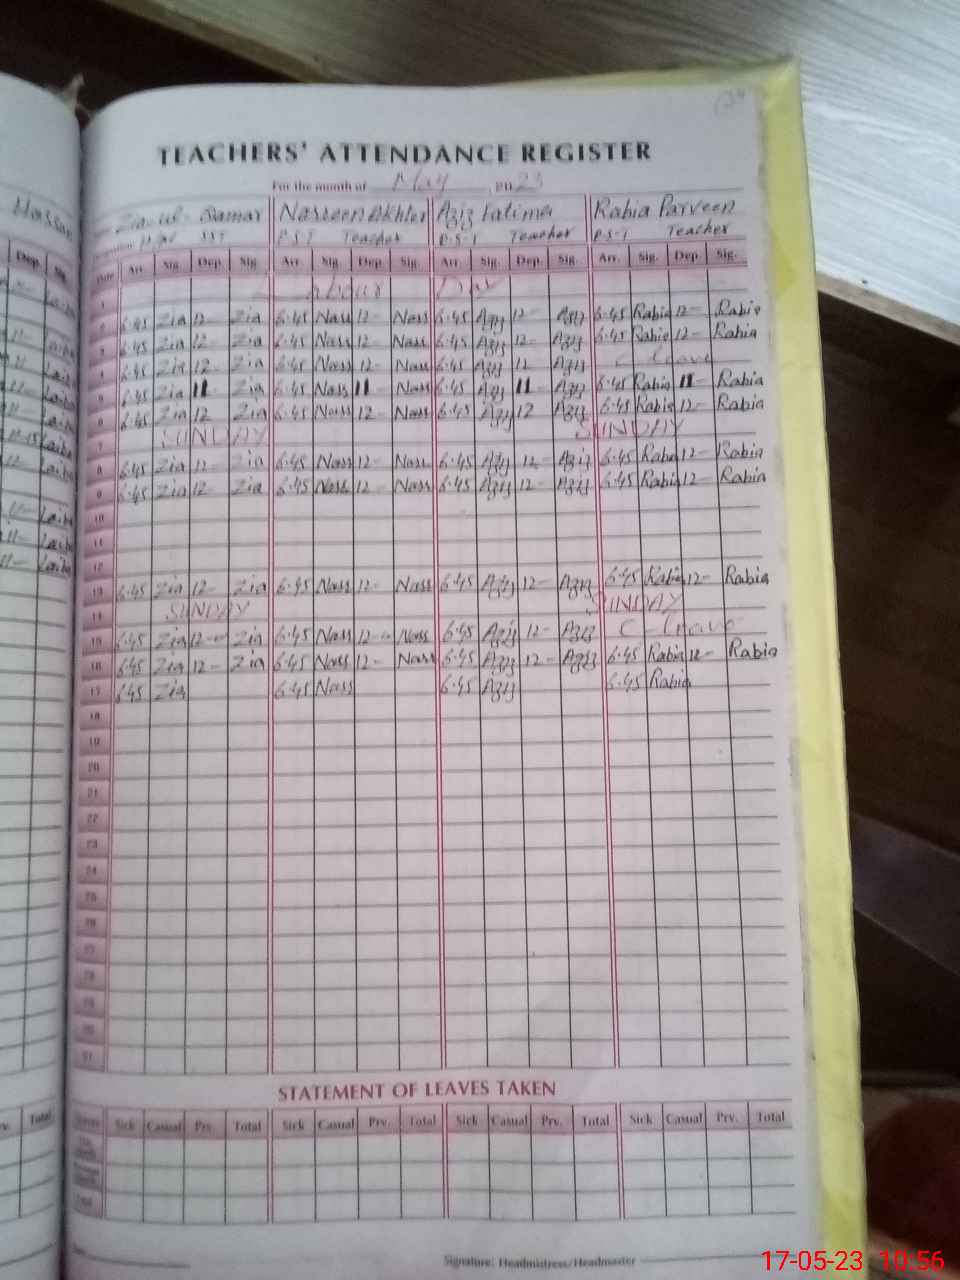 TEACHERS' ATTENDANCE REGISTER
For the month of May, 2023
Hassan Zia-ul-Qamar Nasreen Akhter Aziz Fatima Rabia Parveen
SST P.S.T Teacher P.S.T Teacher P.S.T Teacher
Dep. Sig. Date Arr. Sig. Dep. Sig. Arr. Sig. Dep. Sig. Arr. Sig. Dep. Sig. Arr. Sig. Dep. Sig.
1 Labour Day
2 6.45 Zia 12- Zia 6.45 Nass 12- Nass 6.45 Aziz 12- Aziz 6.45 Rabia 12- Rabia
3 6.45 Zia 12- Zia 6.45 Nass 12- Nass 6.45 Aziz 12 Aziz 6.45 Rabia 12- Rabia
4 6.45 Zia 12- Zia 6.45 Nass 12- Nass 6.45 Aziz 12 Aziz C-leave
5 6.45 Zia 11 Zia 6.45 Nass 11- Nass 6.45 Aziz 11- Aziz 6.45 Rabia 11- Rabia
6 6.45 Zia 12 Zia 6.45 Nass 12- Nass 6.45 Aziz 12 Aziz 6.45 Rabia 12- Rabia
7 SUNDAY SUNDAY
8 6.45 Zia 12- Zia 6.45 Nass 12- Nass 6.45 Aziz 12- Aziz 6.45 Rabia 12- Rabia
9 6.45 Zia 12- Zia 6.45 Nass 12- Nass 6.45 Aziz 12- Aziz 6.45 Rabia 12- Rabia
10
11
12
13 6.45 Zia 12- Zia 6.45 Nass 12- Nass 6.45 Aziz 12- Aziz 6.45 Rabia 12- Rabia
14 SUNDAY SUNDAY
15 6.45 Zia 12- Zia 6.45 Nass 12- Nass 6.45 Aziz 12- Aziz C-leave
16 6.45 Zia 12- Zia 6.45 Nass 12- Nass 6.45 Aziz 12- Aziz 6.45 Rabia 12- Rabia
17 6.45 Zia 6.45 Nass 6.45 Aziz 6.45 Rabia
18
19
20
21
22
23
24
25
26
27
28
29
30
31
STATEMENT OF LEAVES TAKEN
Total Sick Casual Prv. Total Sick Casual Prv. Total Sick Casual Prv. Total Sick Casual Prv. Total
Signature: Headmistress/Headmaster
17-05-23 10:56